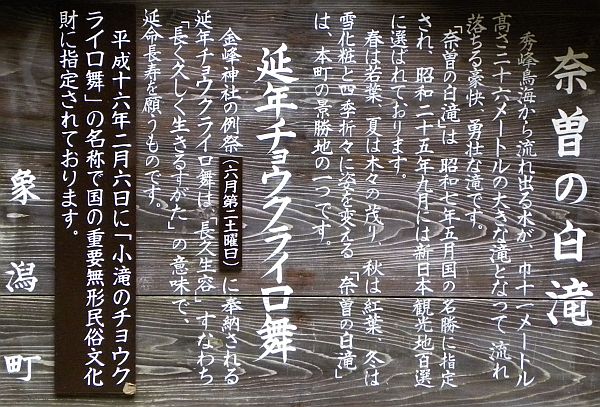 奈曽の白滝
秀峰鳥海から流れ出る水が 巾十一メートル
高さ二十六メートルの大きな滝となって 流れ
落ちる豪快 勇壮な滝です。
「奈曽の白滝」は 昭和七年五月国の名勝に指定
され、昭和二十五年九月には新日本観光地百選
に選ばれております。
春は若葉、夏は木々の茂り、秋は紅葉、冬は
雪化粧と四季折々に姿を変える「奈曽の白滝」
は、本町の景勝地の一つです。
延年チョウクライロ舞
金峰神社の例祭(六月第二土曜日)に奉納される
延年チョウクライロ舞は、「長久生容」すなわち
「長く久しく生きるすがた」の意味で、
延命長寿を願うものです。
平成十六年二月六日に「小滝のチョウク
ライロ舞」の名称で国の重要無形民俗文化
財に指定されております。
象潟町